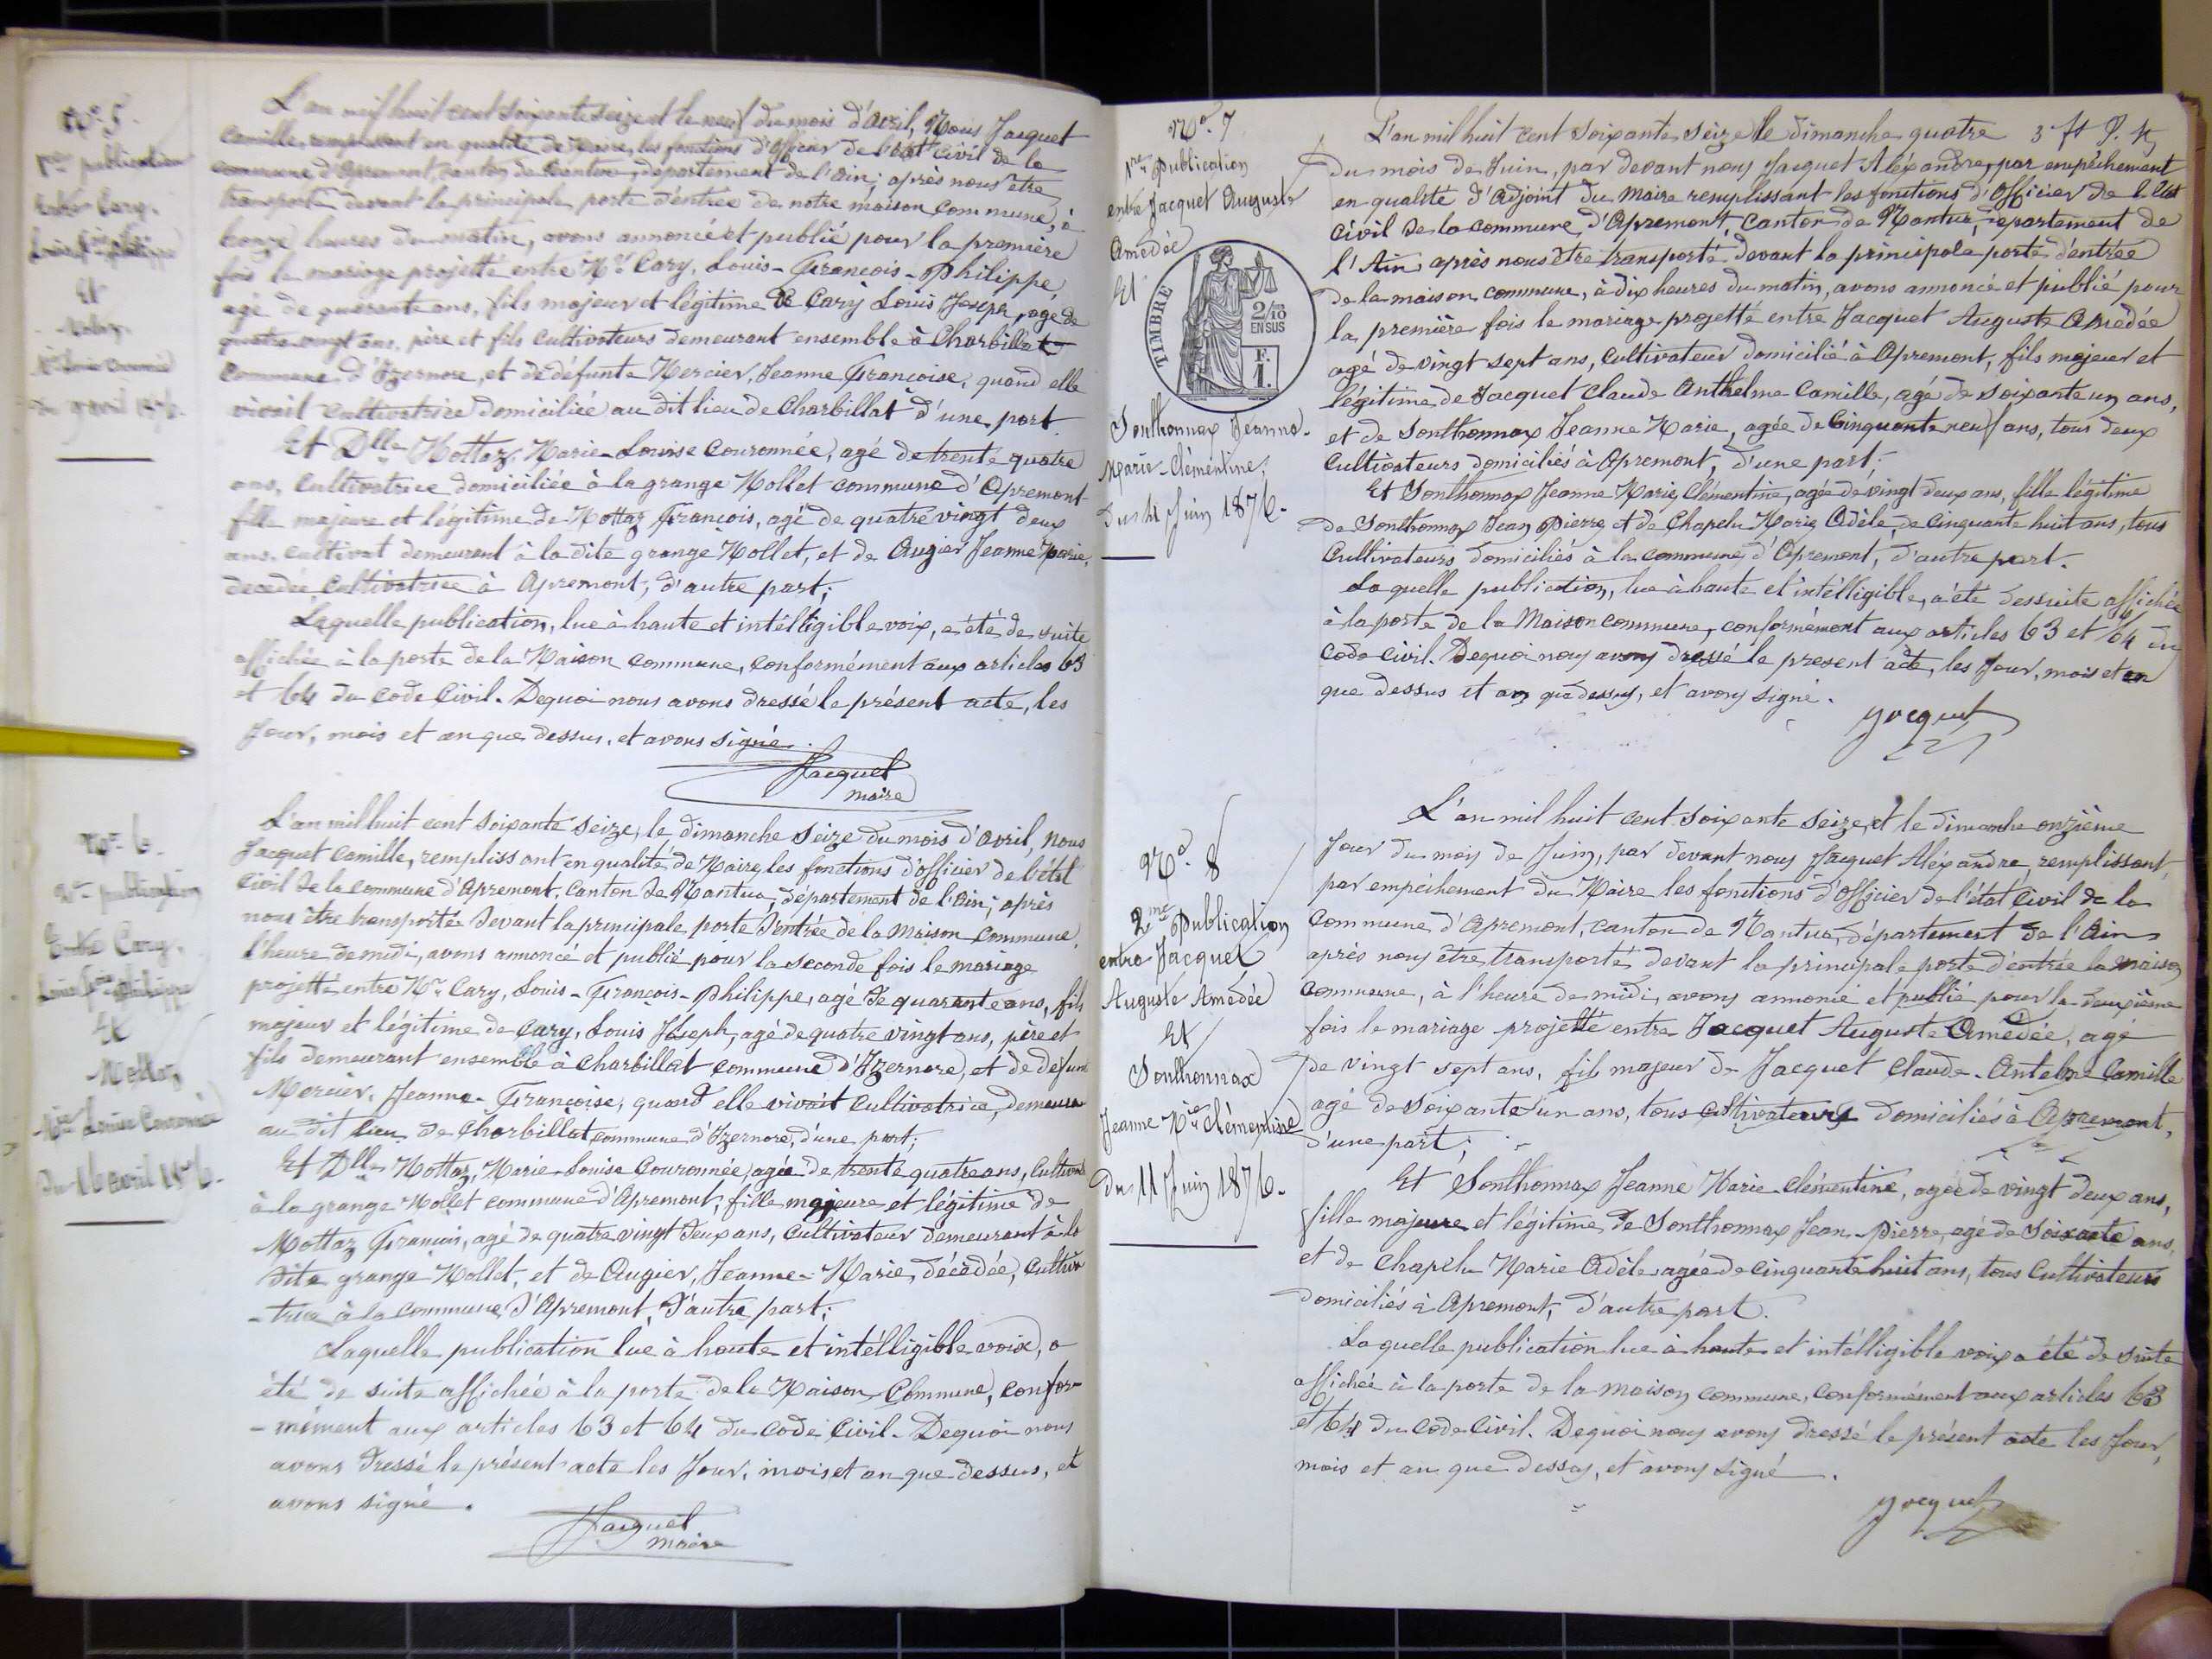 No 5.
1ère publication
Entre Cary.
Louis Fçois Philippe
Et
Mottaz
Mie Louise Couronnée
du 9 avril 1876.
L'an mil huit cent soixante seize et le neuf du mois d'avril, Nous Jacquet
Camille, remplissant en qualité de Maire, les fonctions d'officier de l'état civil de la
commune d'Apremont, canton de Nantua, département de l'Ain; après nous être
transporté devant la principale porte d'entrée de notre maison commune, à
onze heures du matin, avons annoncé et publié pour la première
fois le mariage projetté entre Mr Cary, Louis-François-Philippe,
agé de quarante ans, fils majeur et légitime de Cary Louis Joseph, agé de
quatre vingt ans, père et fils cultivateurs demeurant ensemble à Charbillat
Commune d'Izernore, et de défunte Mercier, Jeanne Françoise, quand elle
vivait cultivatrice domiciliée au dit lieu de Charbillat d'une part.
Et Dlle Mottaz, Marie-Louise Couronnée, agé de trente quatre
ans, Cultivatrice domiciliée à la grange Mollet commune d'Apremont
fille majeure et légitime de Mottaz François, agé de quatre vingt deux
ans, cultivat demeurant à la dite grange Mollet, et de Augier Jeanne Marie,
decedée, Cultivatrice à Apremont, d'autre part;
Laquelle publication, lue à haute et intélligible voix, a été de suite
affichée à la porte de la Maison commune, conformément aux articles 63
et 64 du code Civil. Dequoi nous avons dressé le présent acte, les
Jour, mois et an que dessus, et avons signé.
Jacquet
maire
No 6.
2me publication
Entre Cary.
Louis Fçois Philippe
Et
Mottaz
Mie Louise Couronnée
Du 16 avril 1876.
L'an mil huit cent soixante seize, le dimanche seize du mois d'avril, Nous
Jacquet Camille, remplissant en qualité de Maire, les fonctions d'officier de l'état
Civil de la Commune d'Apremont, Canton de Nantua, département de l'Ain; après
nous être transporté devant la principale porte d'entrée de la maison commune,
l'heure de midi, avons annoncé et publié pour la seconde fois le mariage
projetté entre Mr Cary, Louis-François-Philippe, agé de quarante ans, fils
majeur et légitime de Cary, Louis Joseph, agé de quatre vingt ans, père et
fils demeurant ensemble à Charbillat commune d'Izernore, et de defunt
Mercier, Jeanne-Françoise, quand elle vivait Cultivatrice, demeura
au dit lieu de Charbillat commune d'Izernore, d'une part;
Et Dlle Mottaz, Marie-Louise Couronnée, agée de trente quatre ans, Cultiva
à la grange Mollet commune d'Apremont, fille majeure et légitime de
Mottaz François, agé de quatre vingt deux ans, Cultivateur demeurant à la
dite grange Mollet, et de Augier, Jeanne-Marie, décédée, Cultiva
-trice à la commune d'Apremont, d'autre part;
Laquelle publication lue à haute et intélligible voix, a
été de suite affichée à la porte de la Maison Commune, confor
-mément aux articles 63 et 64 du code Civil. Dequoi nous
avons dressé le présent acte les Jour, mois et an que dessus, et
avons signé.
Jacquet
maire
No. 7
1re Publication
entre Jacquet Auguste
Amédée
Et
TIMBRE
2/10
EN SUS
F.
1.
Sonthonnax Jeanne-
Marie-Clémentine,
Du 4 Juin 1876.
L'an mil huit cent soixante seize le dimanche quatre 3 ft
du mois de Juin, par devant nous Jacquet Aléxandre, par empêchement
en qualité d'Adjoint du Maire remplissant les fonctions d'Officier de l'Etat
Civil de la commune, d'Apremont, Canton de Nantua, département de
l'Ain après nous être transporté devant la principale porte d'entrée
de la maison commune, à dix heures du matin, avons annoncé et publié pour
la première fois le mariage projetté entre Jacquet Auguste Amédée
agé de vingt sept ans, Cultivateur domicilié à Apremont, fils majeur et
légitime de Jacquet Claude Anthelme Camille, agé de soixante un ans,
et de Sonthonnax Jeanne Marie, agée de Cinquante neuf ans, tous deux
Cultivateurs domiciliés à Apremont, d'une part;
Et Sonthonnax Jeanne Marie Clémentine, agée de vingt deux ans, fille légitime
de Sonthonnax Jean Pierre, et de Chapelu Marie Adèle, de Cinquante huit ans, tous
Cultivateurs domiciliés à la commune d'Apremont, d'autre part.
Laquelle publication, lue à haute et intélligible, a été dessuite affichée
à la porte de la Maison commune, conformément aux articles 63 et 64 du
Code Civil. Dequoi nous avons dressé le present acte, les Jour, mois et an
que dessus et an que dessus, et avons signé.
Jacquet
No. 8
2me Publication
entre Jacquet
Auguste Amédée
Et
Sonthonnax
Jeanne Mie Clémentine
Du 11 Juin 1876.
L'an mil huit cent soixante seize, et le dimanche onzième
Jour du mois de Juin, par devant nous Jacquet Aléxandre, remplissant,
par empêchement du Maire les fonctions d'Officier de l'état Civil de la
Commune d'Apremont, canton de Nantua, département de l'Ain
après nous être transporté devant la principale porte d'entrée la maison
commune, à l'heure de midi, avons annoncé et publié pour la deuxième
fois le mariage projetté entre Jacquet Auguste Amédée, agé
de vingt sept ans, fils majeur de Jacquet Claude-Antelme Camille
agé de soixante un ans, tous cultivateurs domiciliés à Apremont,
d'une part;
Et Sonthonnax Jeanne Marie-Clémentine, agée de vingt deux ans,
fille majeure et légitime de Sonthonnax Jean-Pierre, agé de Soixante ans,
et de Chapelu Marie Adèle agée de cinquante huit ans, tous Cultivateurs
domiciliés à Apremont, d'autre part.
Laquelle publication lue à haute et intélligible voix a été de suite
affichée à la porte de la maison commune, conformément aux articles 63
et 64 du Code Civil. Dequoi nous avons dressé le présent acte les Jour,
mois et an que dessus, et avons signé.
Jacquet